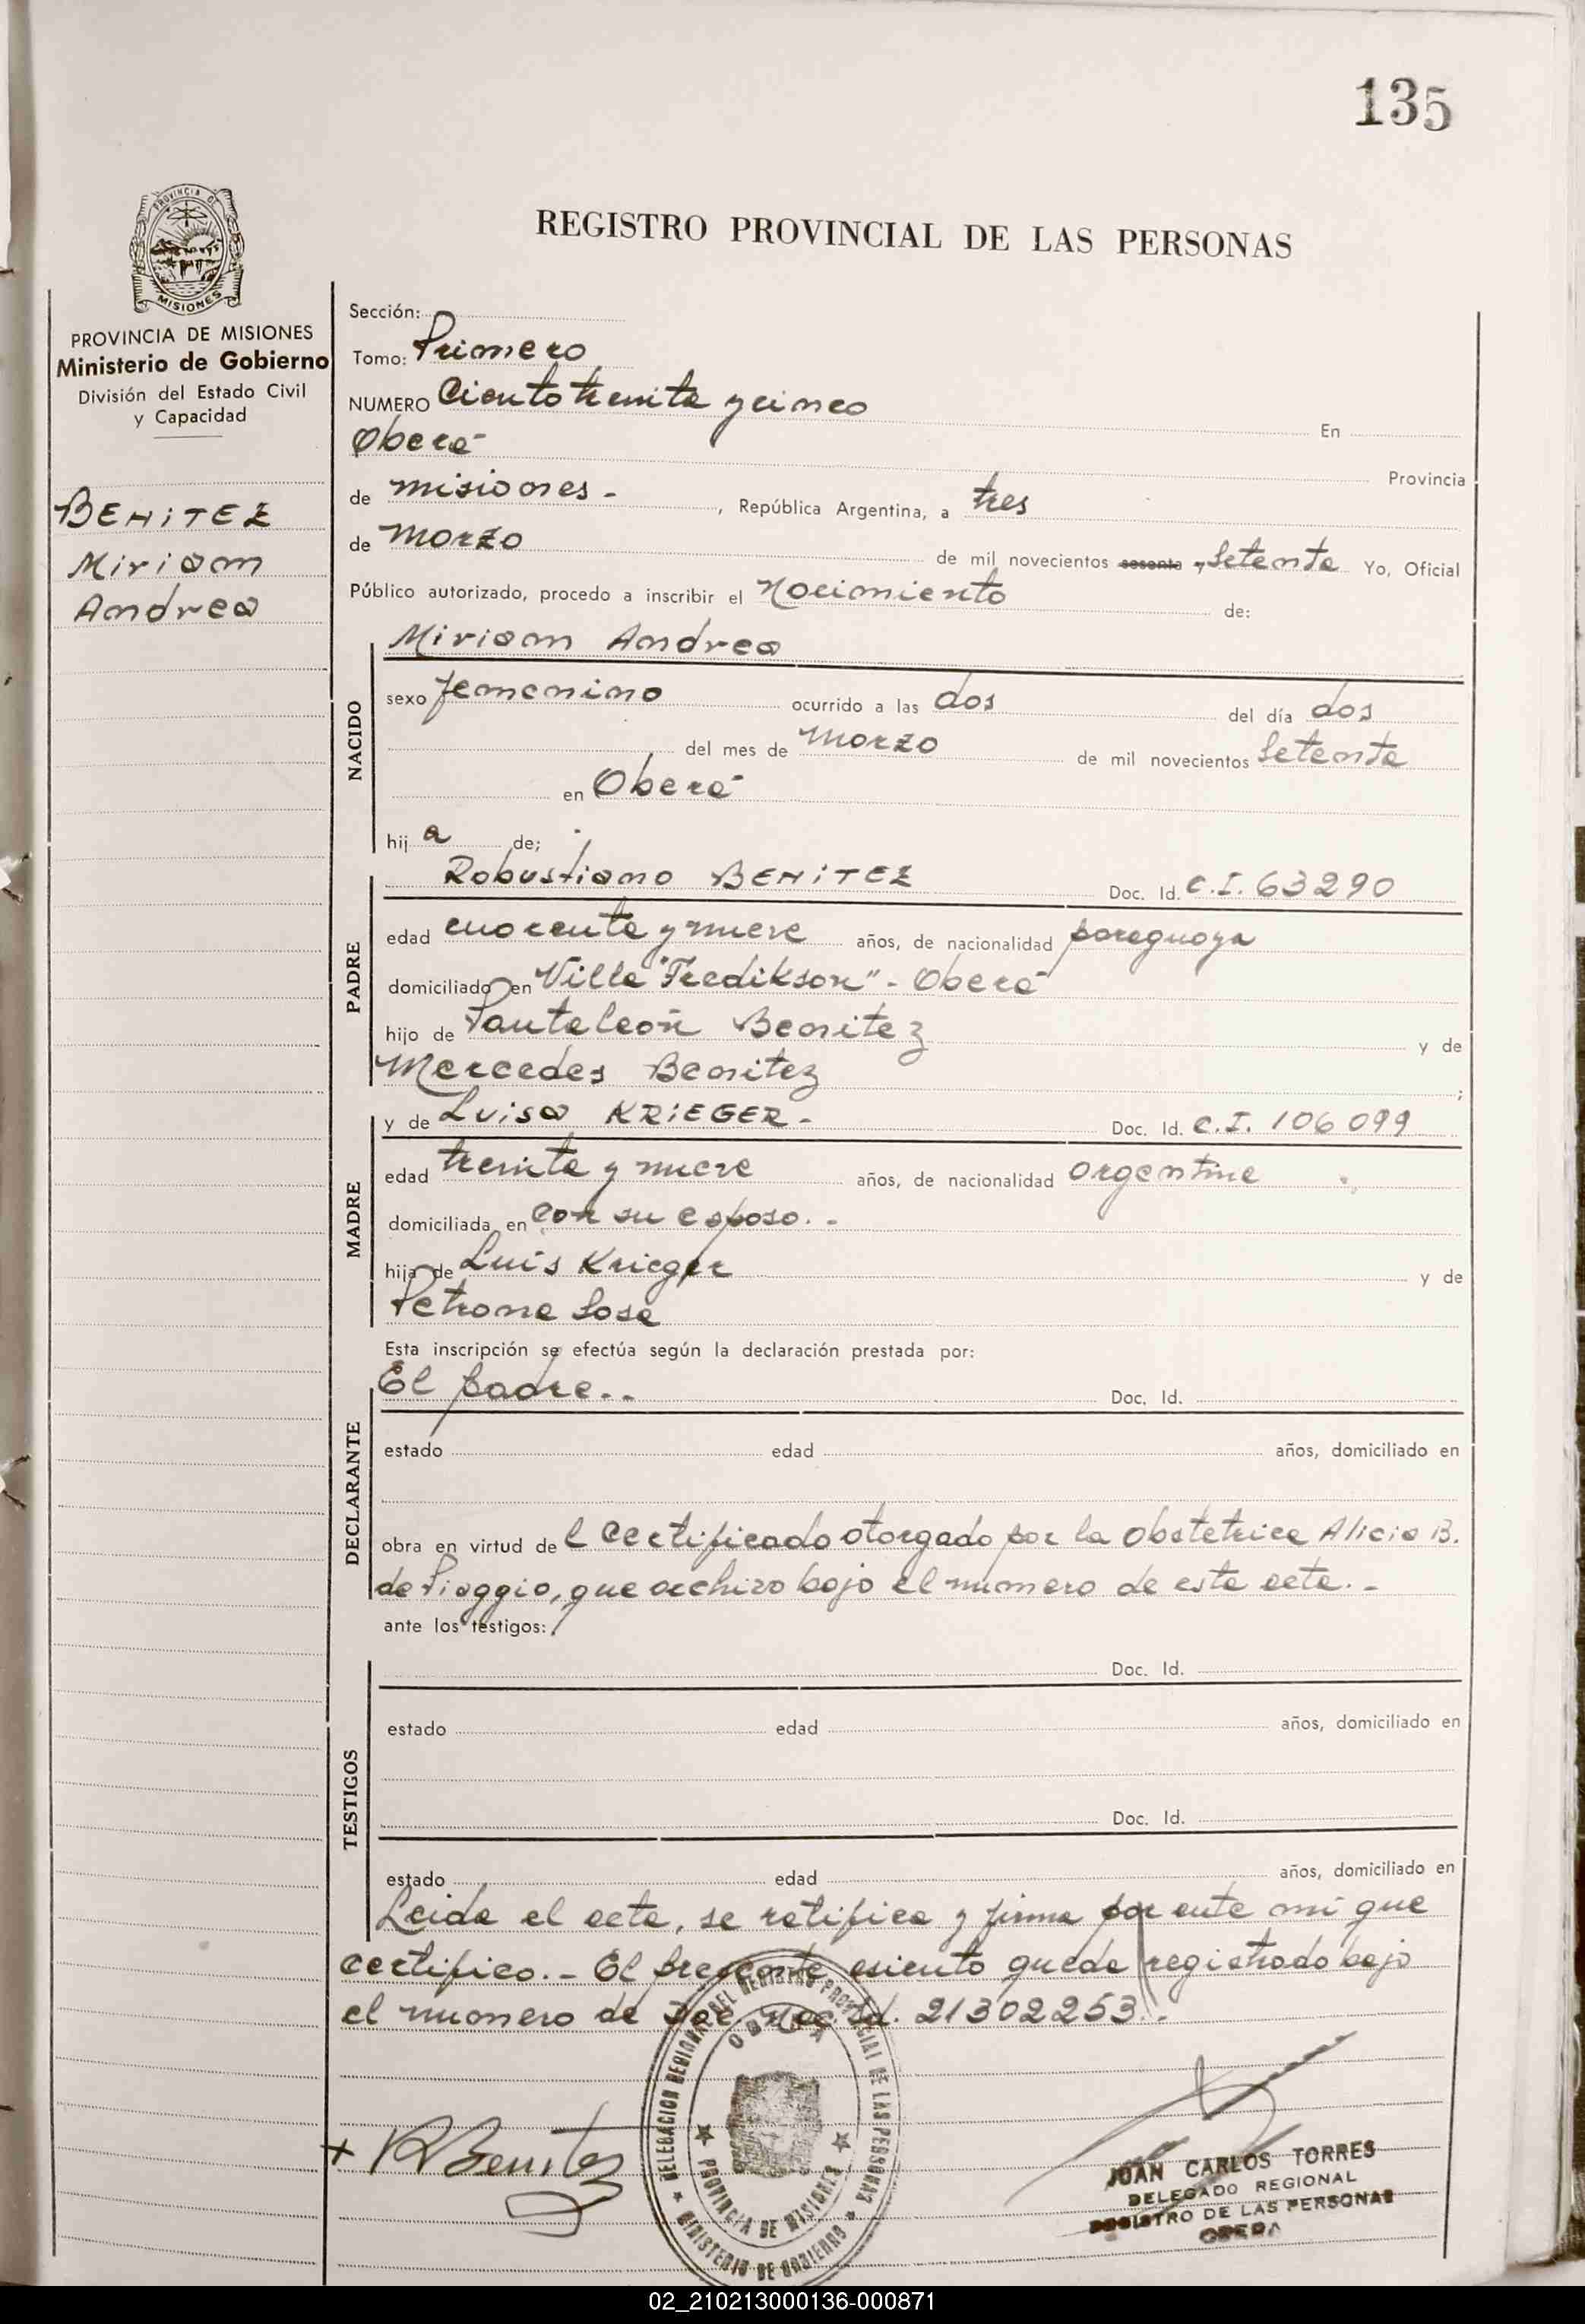 135
REGISTRO PROVINCIAL DE LAS PERSONAS
PROVINCIA DE
MISIONES
PROVINCIA DE MISIONES
Ministerio de Gobierno
División del Estado Civil
y Capacidad
BENITEZ
Miriam
Andrea
Sección:
Tomo: Primero
NUMERO Ciento treinta y cinco En
Oberá Provincia
de misiones - , República Argentina, a tres
de Marzo de mil novecientos sesenta y Setenta Yo, Oficial
Público autorizado, procedo a inscribir el Nacimiento de:
NACIDO
Miriam Andrea
sexo femenino ocurrido a las dos del día dos
del mes de Marzo de mil novecientos Setenta
en Oberá
hij a de;
PADRE
Robustiano BENITEZ Doc. Id. C.I. 63290
edad cuarenta y nueve años, de nacionalidad paraguaya
domiciliado en Villa "Fredikson" - Oberá
hijo de Pantaleón Benitez y de
Mercedes Benitez ;
MADRE
y de Luisa KRIEGER - Doc. Id. C.I. 106099
edad treinta y nueve años, de nacionalidad argentina
domiciliada en con su esposo. -
hija de Luis Krieger y de
Petrona Sosa
Esta inscripción se efectúa según la declaración prestada por:
DECLARANTE
El padre. - Doc. Id.
estado edad años, domiciliado en
obra en virtud de l Certificado otorgado por la Obstetrica Alicia B.
de Piaggio, que archivo bajo el numero de esta acta. -
ante los testigos:
TESTIGOS
Doc. Id.
estado edad años, domiciliado en
Doc. Id.
estado edad años, domiciliado en
Leida el acta, se ratifica y firma por ante mi que
certifico. - El presente asiento queda registrado bajo
el numero de Doc. Nac. Id. 21302253. -
+ R Benitez
DELEGACION REGIONAL DEL REGISTRO PROVINCIAL DE LAS PERSONAS
OBERA
PROVINCIA DE MISIONES
MINISTERIO DE GOBIERNO
JUAN CARLOS TORRES
DELEGADO REGIONAL
REGISTRO DE LAS PERSONAS
OBERA
02_210213000136-000871